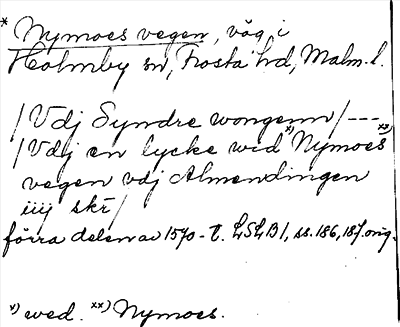 * Nymoes vegen, väg i
Holmby sn, Frosta hd, Malm. l.
/Vdj Syndre wongenn/---
/Vdj en lycke wid x) Nymoes xx)
vegen vdj Almendingen
iiij skr/
förra delen av 1570-t. LSLB1, ss. 186, 187. orig.
x) wed. xx) Nymoes.